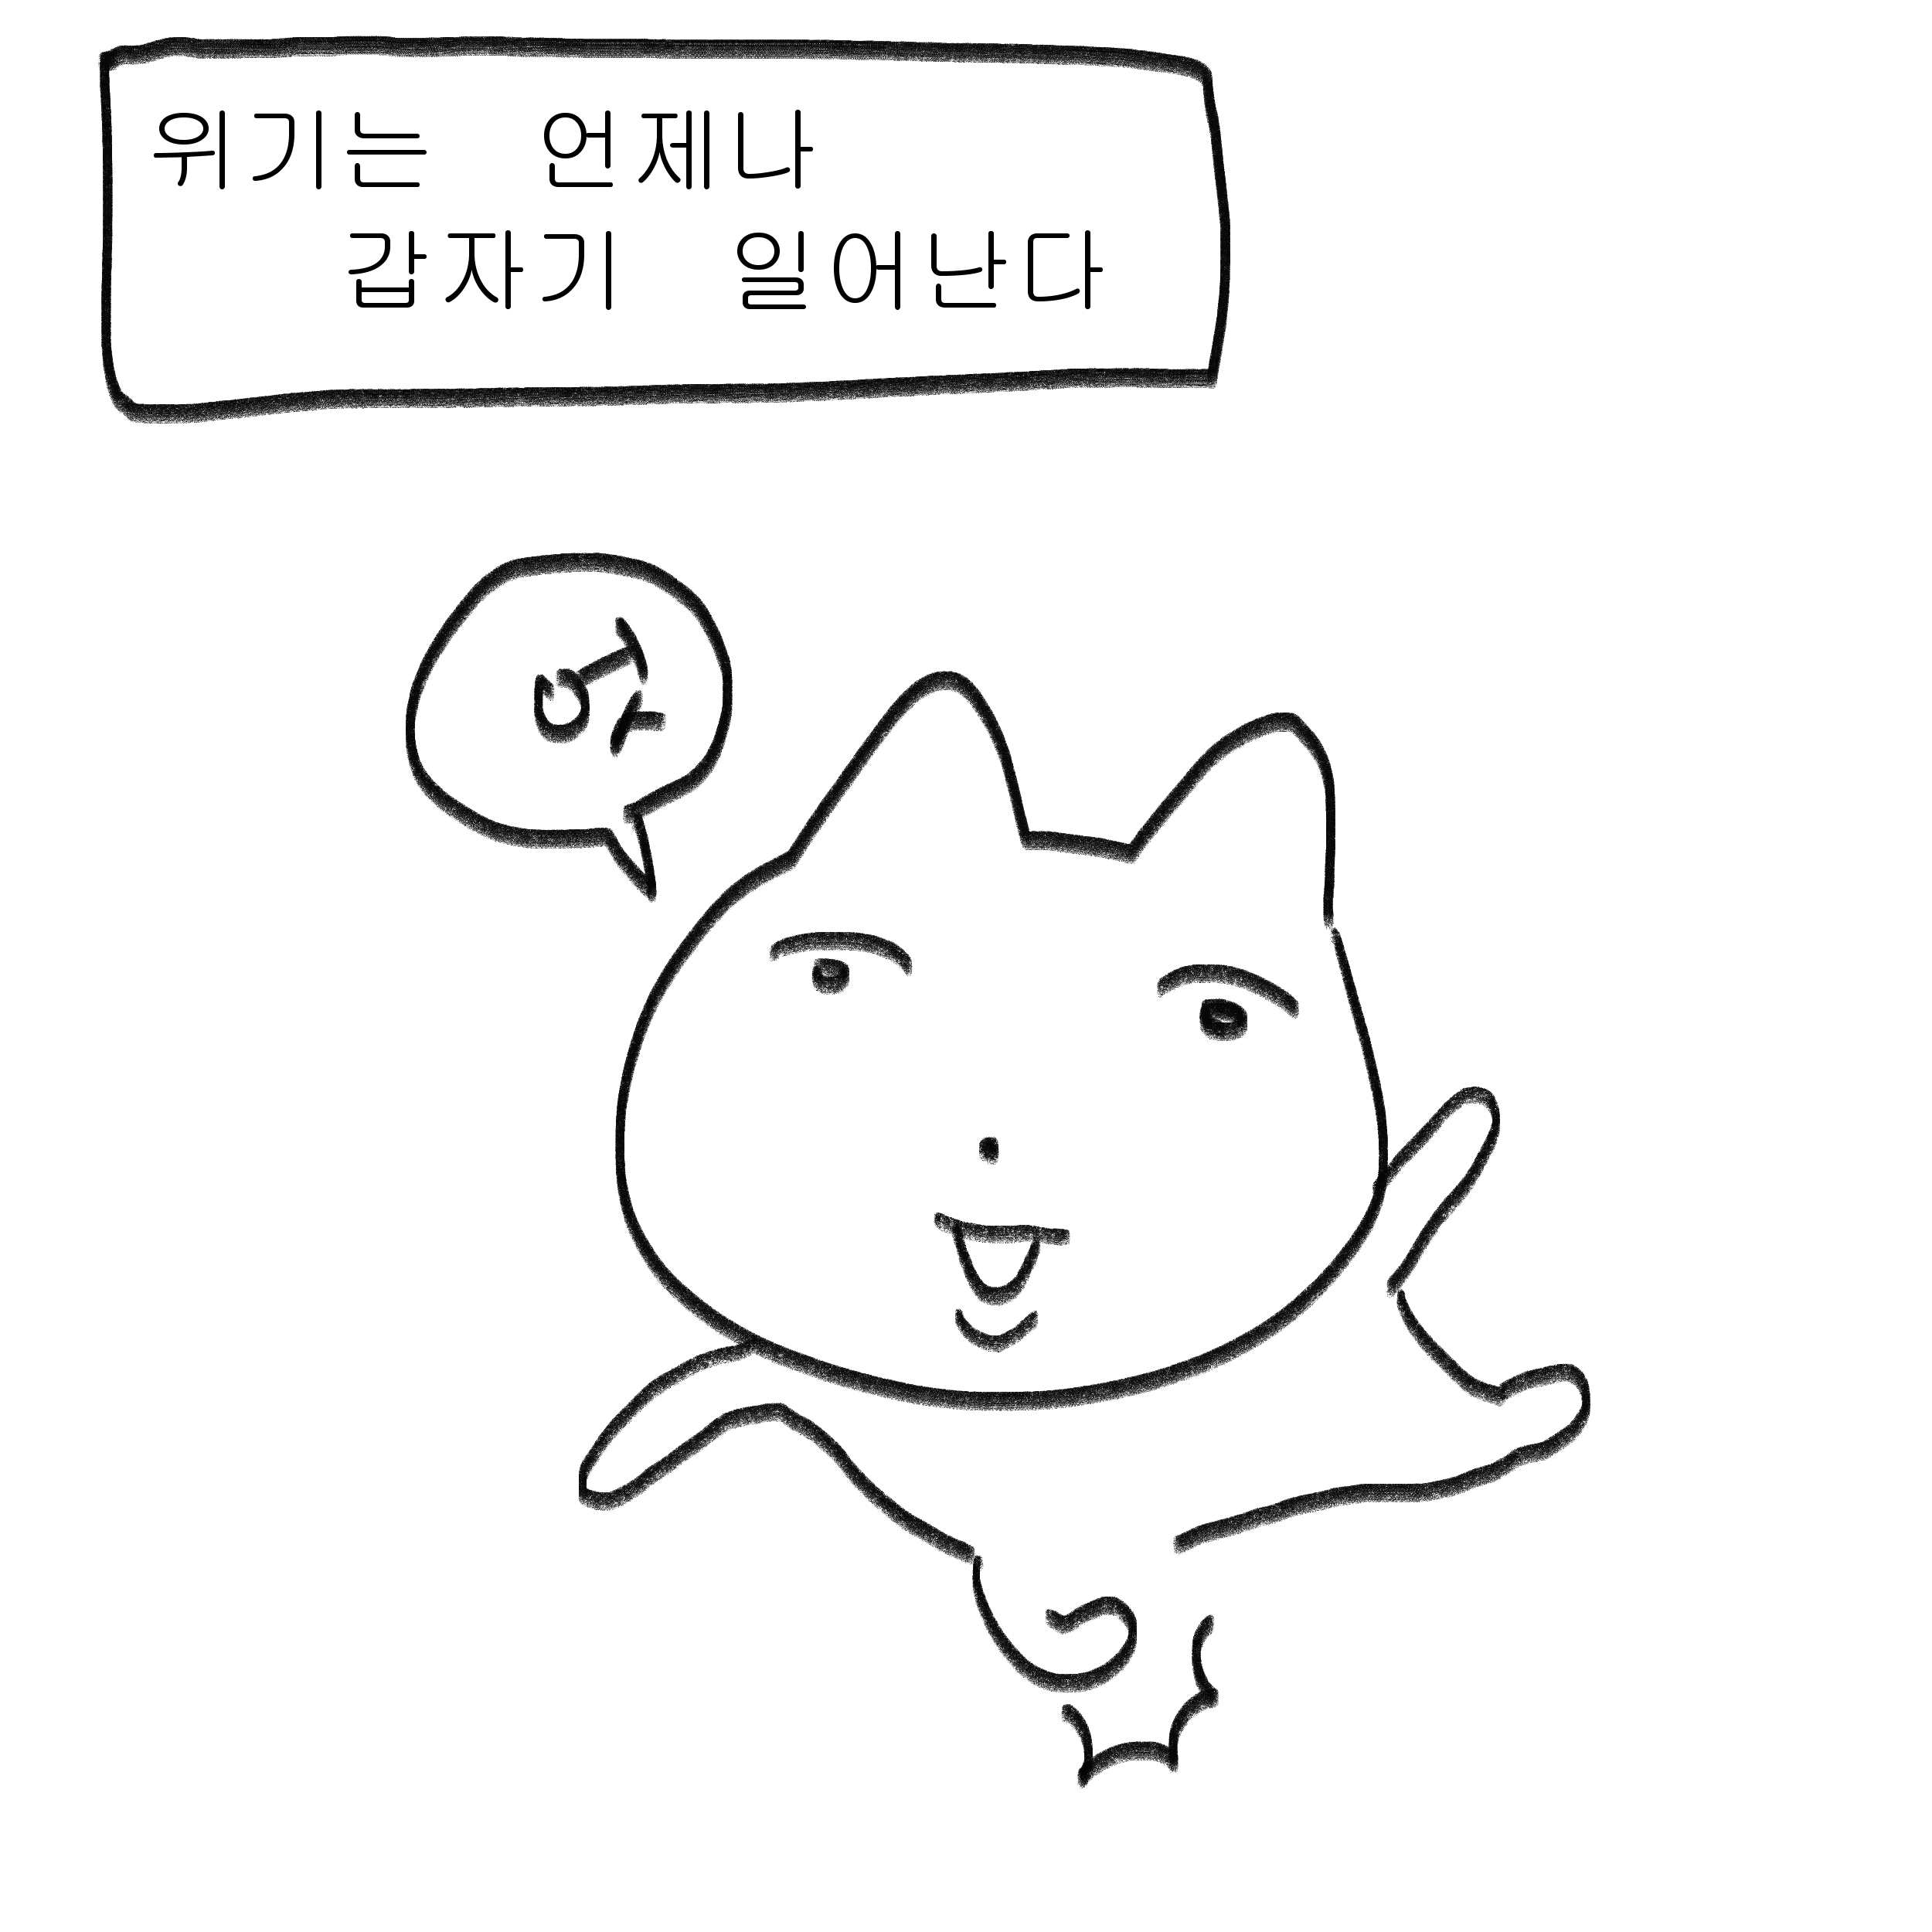 위기는 언제나
갑자기 일어난다
엇